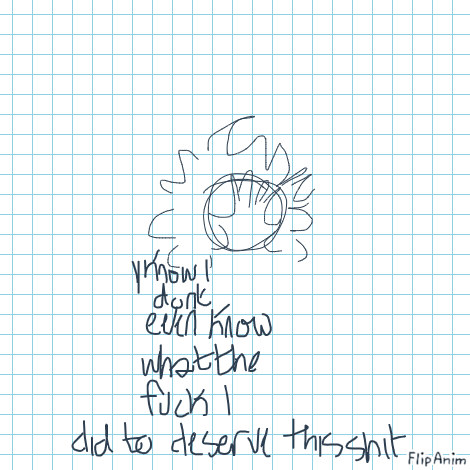 yknow I
dont
even know
what the
fuck I
did to deserve this shit
FlipAnim